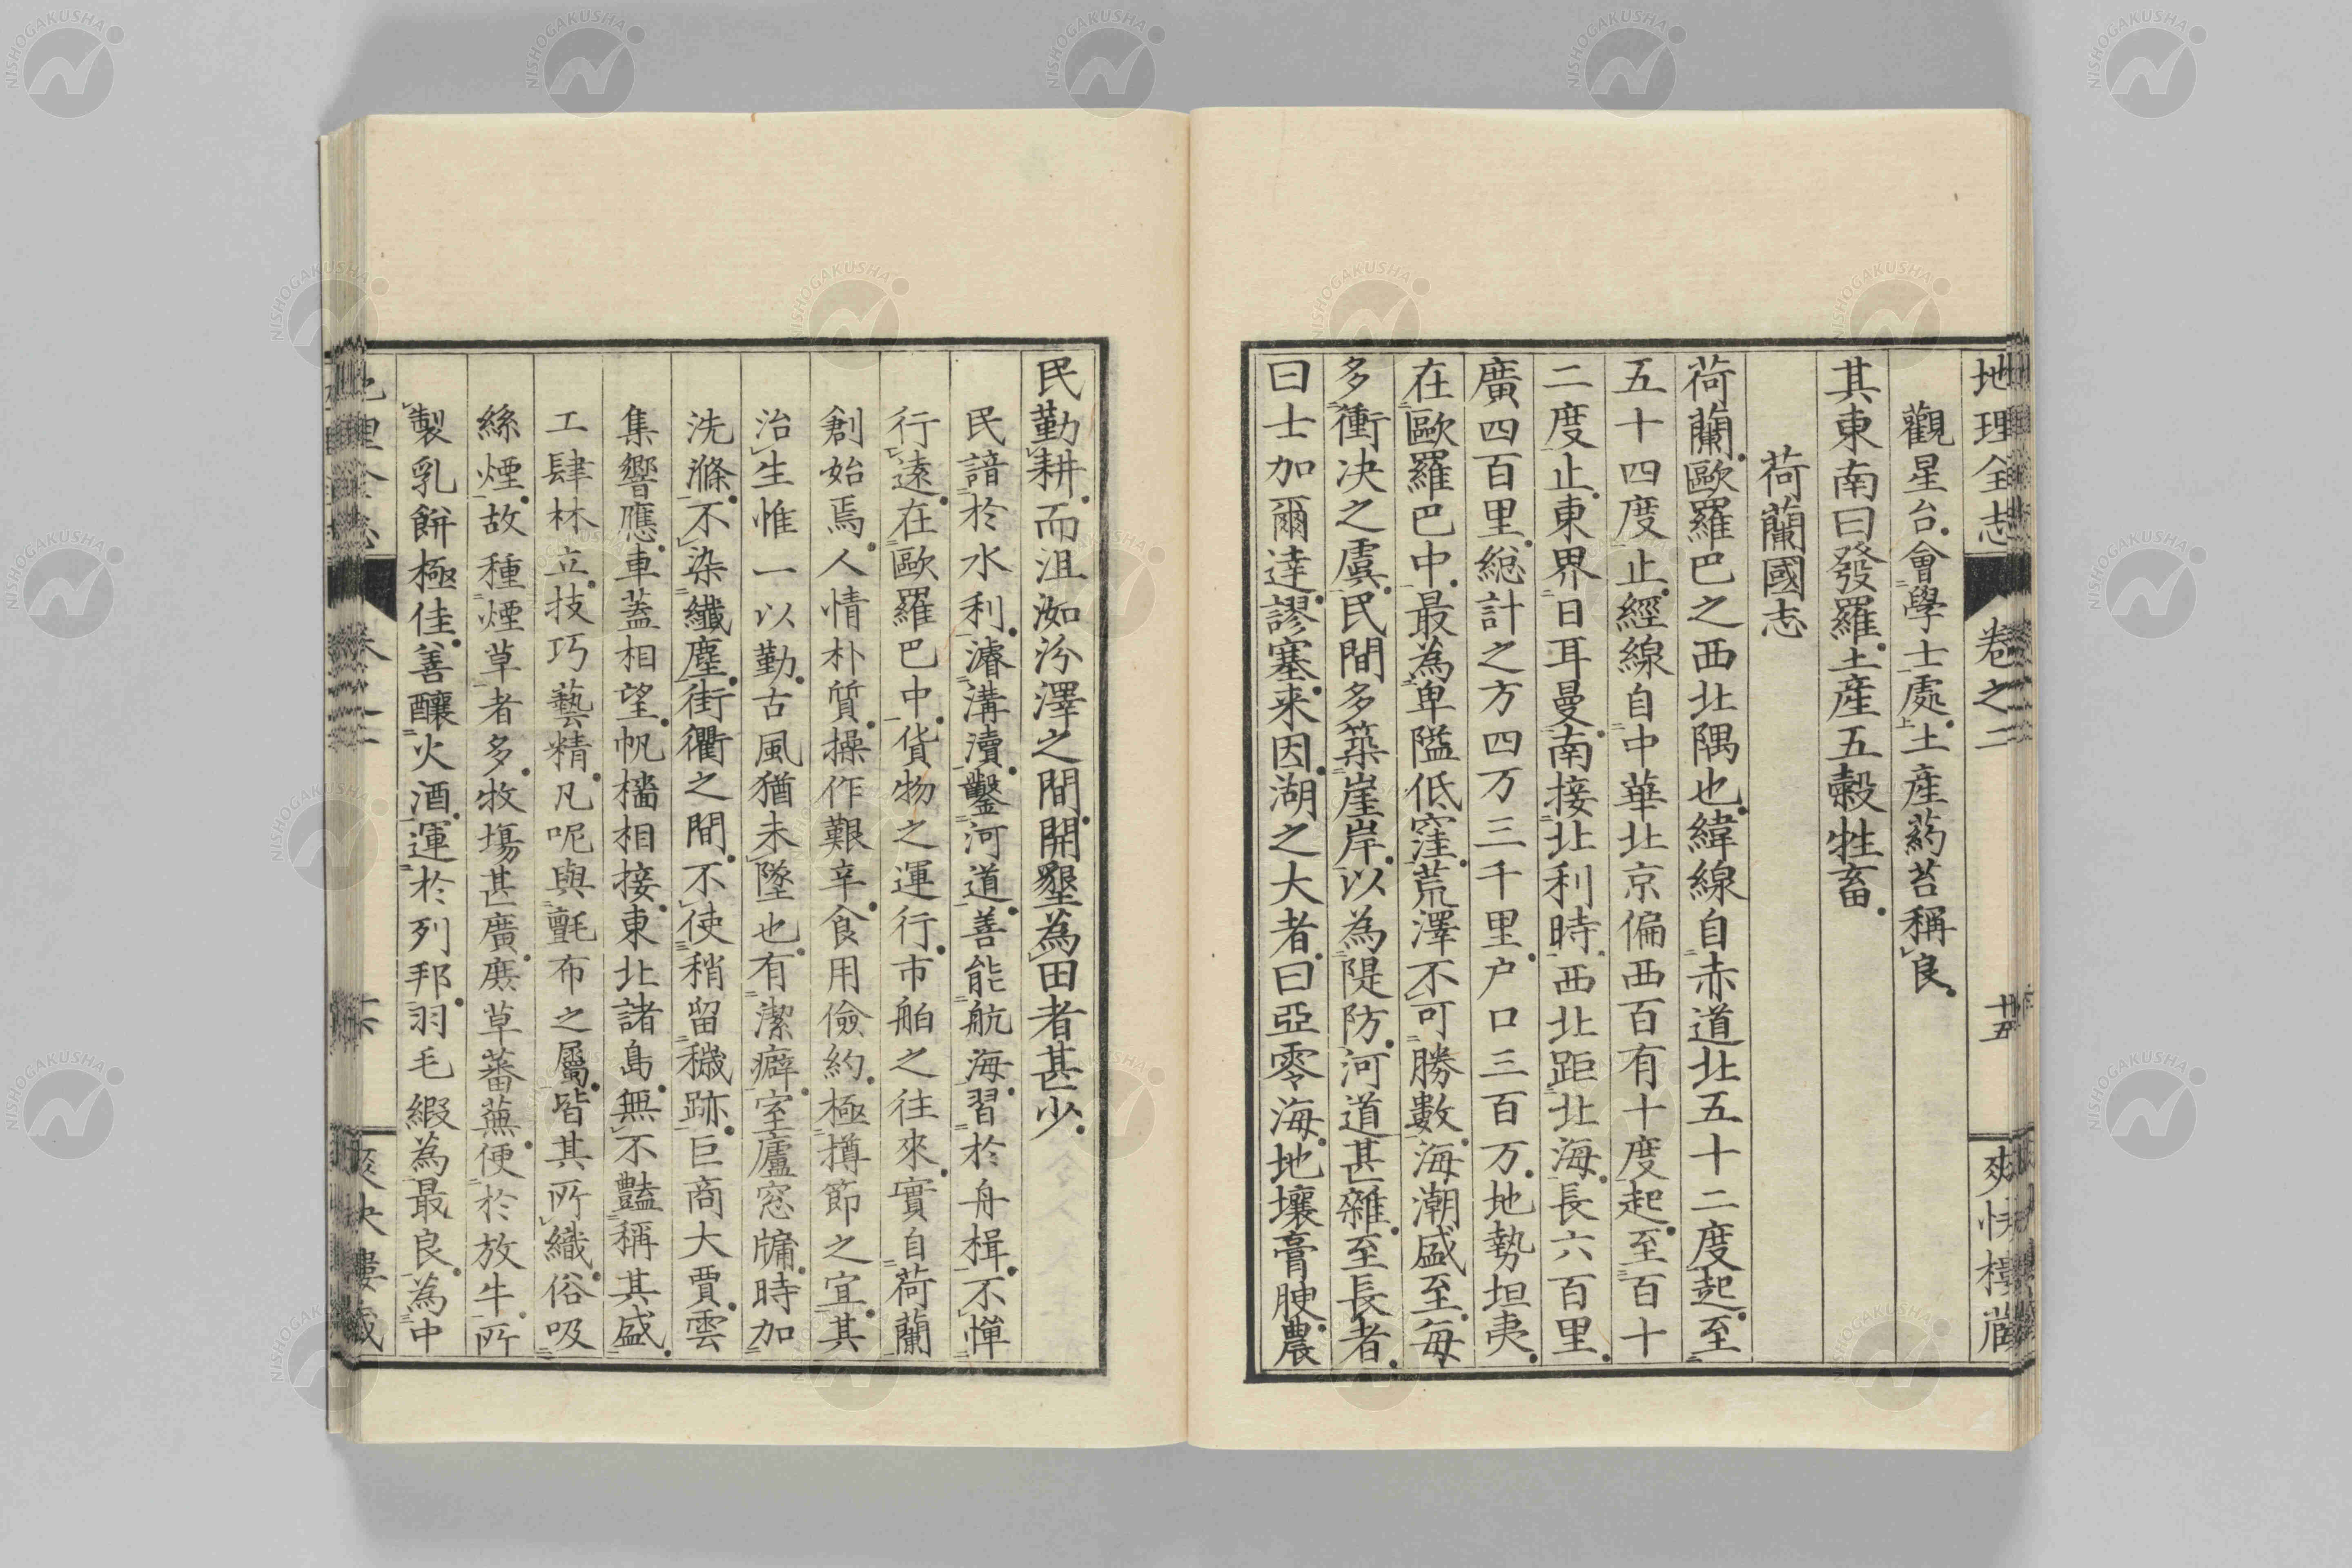 地理全志 卷之二 十五 爽快樓藏
觀星台會學士處土產葯苔稱良
其東南曰發羅土產五穀牲畜
荷蘭國志
荷蘭歐羅巴之西北隅也緯線自赤道北五十二度起至
五十四度止經線自中華北京偏西百有十度起至百十
二度止東界日耳曼南接北利時西北距北海長六百里
廣四百里総計之方四万三千里户口三百万地勢坦夷
在歐羅巴中最為卑隘低窪荒澤不可勝數海潮盛至每
多衝决之虞民間多築崖岸以為隄防河道甚雜至長者
曰士加爾達謬塞来因湖之大者曰亞零海地壤膏腴農
民勤耕而沮洳汾澤之間開墾為田者甚少
民諳於水利濬溝瀆鑿河道善能航海習於舟楫不憚
行遠在歐羅巴中貨物之運行市舶之往來實自荷蘭
創始焉人情朴質操作艱辛食用儉約極撙節之宜其
治生惟一以勤古風猶未墜也有潔癖室廬窓牗時加
洗滌不染纖塵街衢之間不使稍留穢跡巨商大賈雲
集響應車蓋相望帆檣相接東北諸島無不豔稱其盛
工肆林立技巧藝精凡呢與氈布之屬皆其所織俗吸
絲煙故種煙草者多牧場甚廣廣草蕃蕪便於放牛所
製乳餅極佳善釀火酒運於列邦羽毛緞為最良為中
地理全志 卷之二